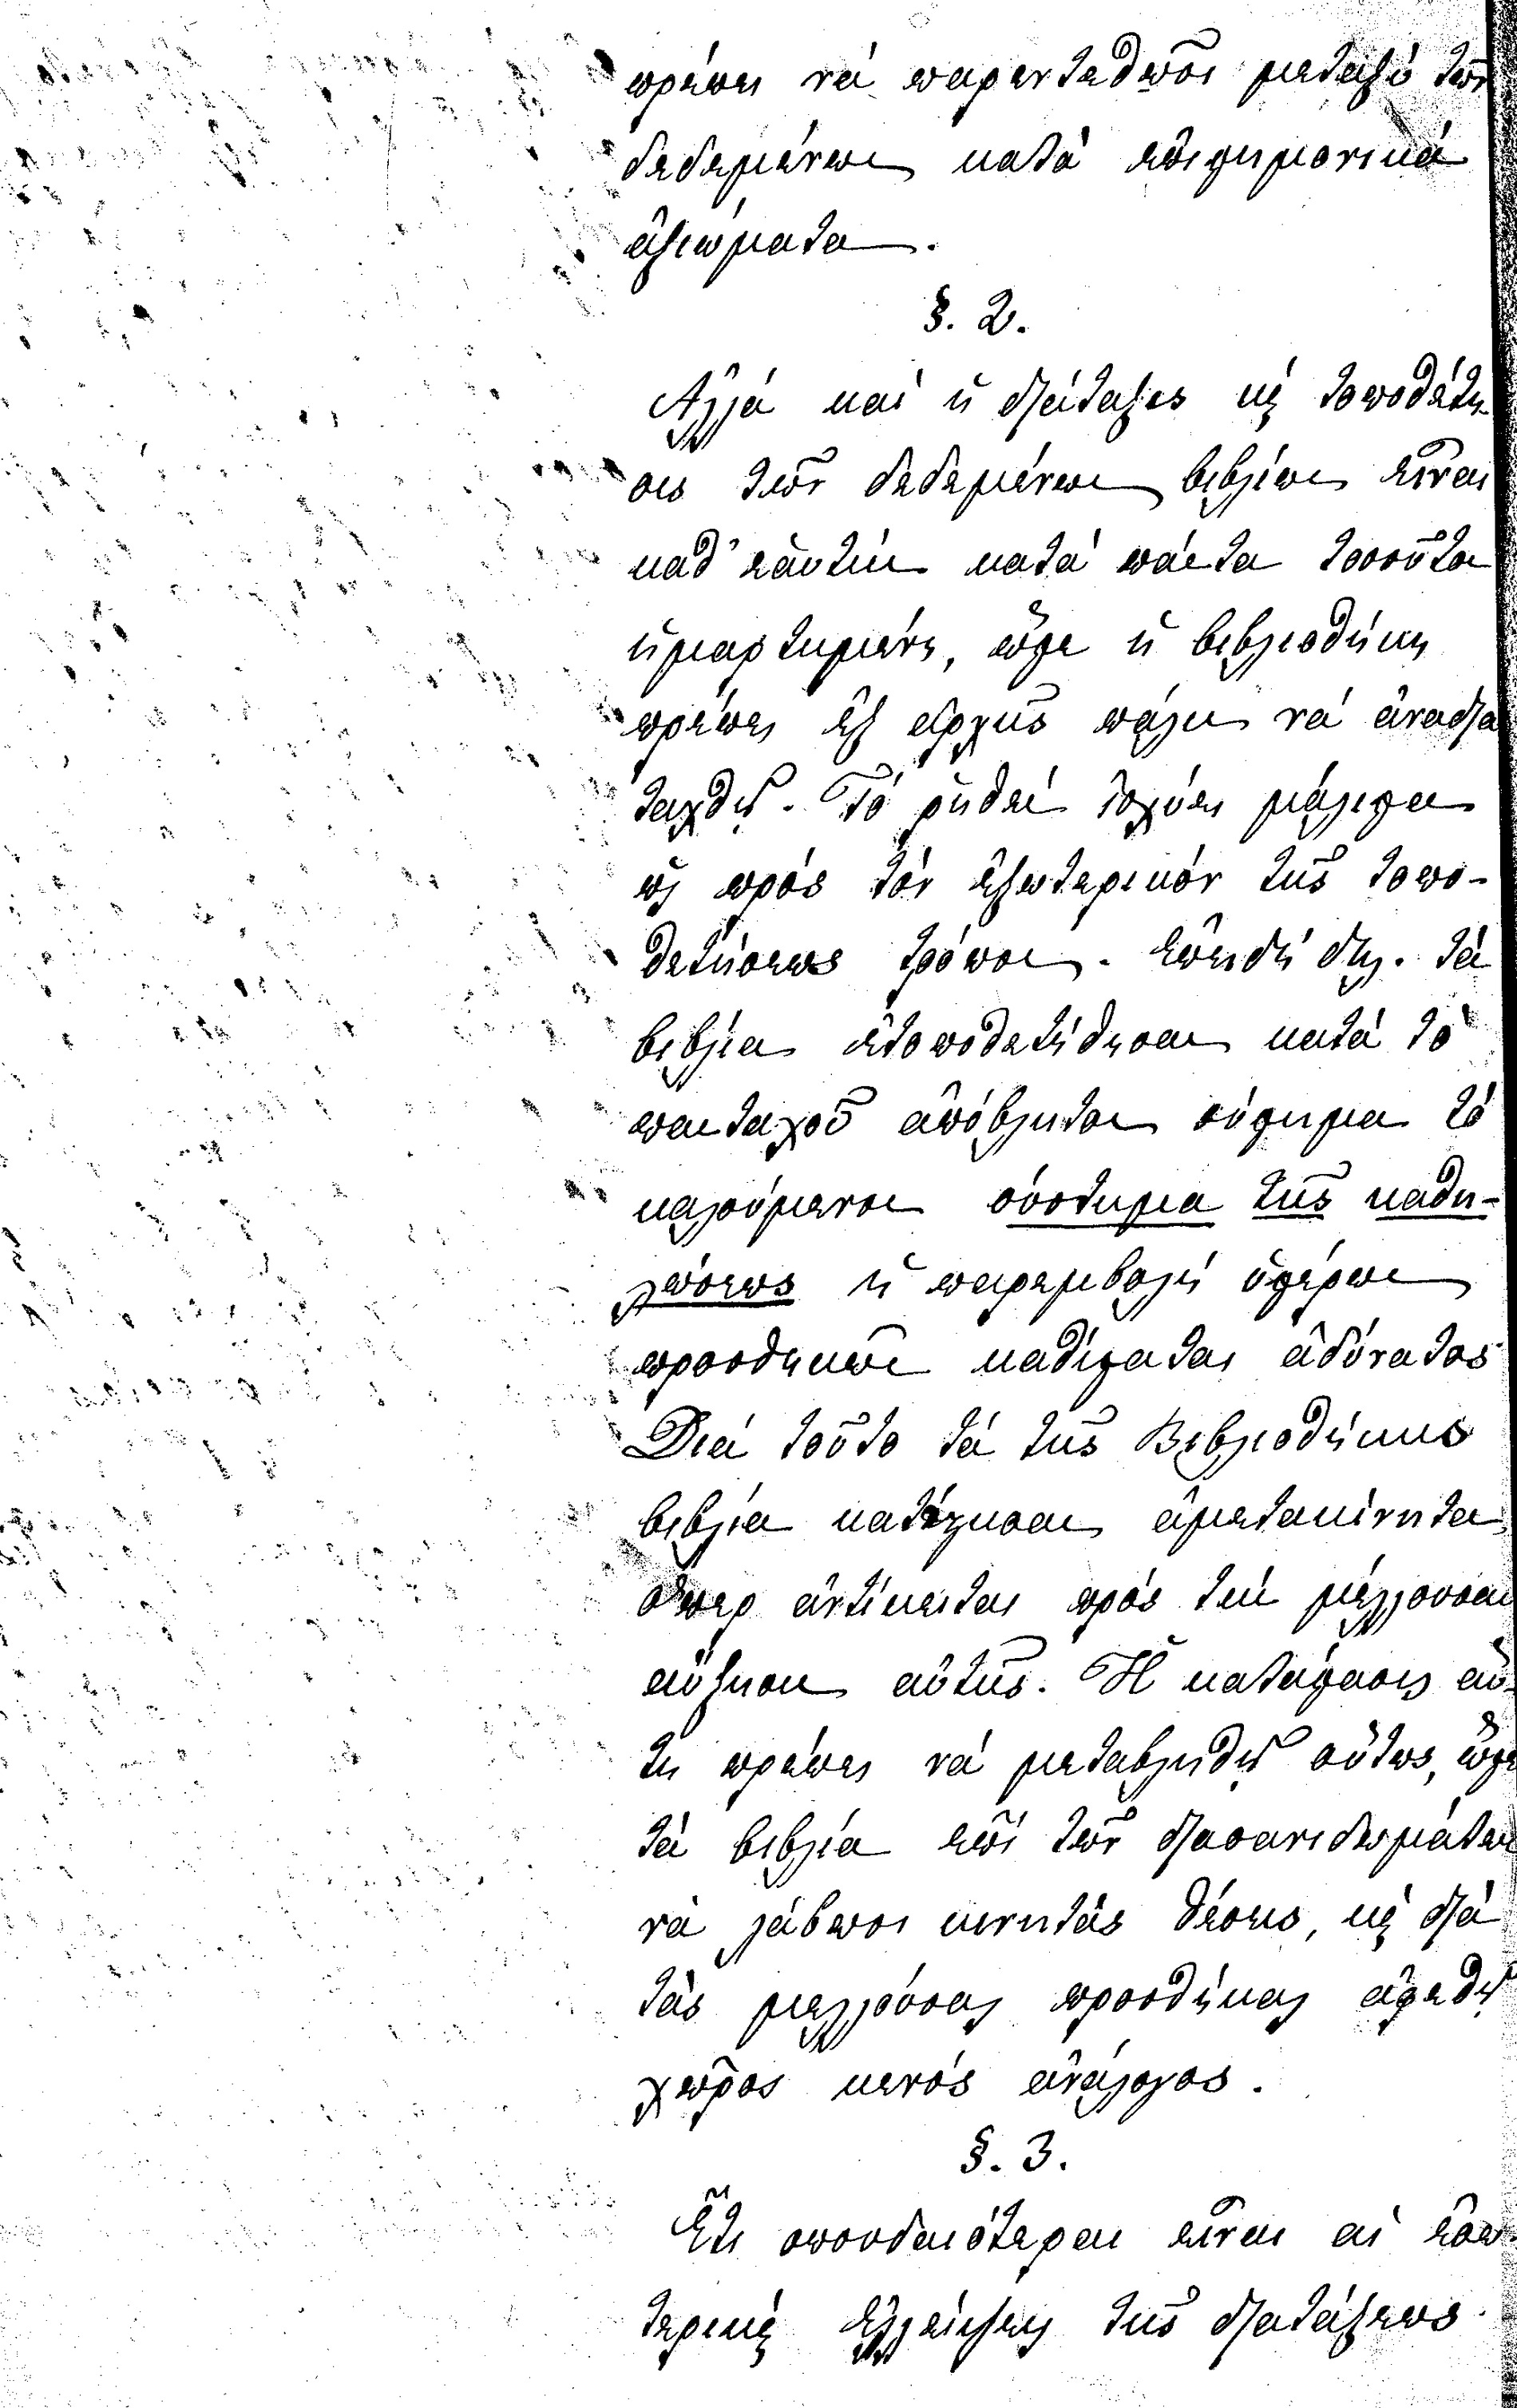 πρέπει νά παρεντεθῶσι μεταξύ τῶν
δεδεμένων κατά ἐπιστημονικά
ἀξιώματα.
§. 2.
Ἀλλά καί ἡ διάταξις καί τοποθέτη-
σις τῶν δεδεμένων βιβλίων εἶναι
καθ' ἑαυτήν κατά πάντα τοσοῦτον
ἡμαρτημένη, ὥστε ἡ βιβλιοθήκη
πρέπει ἐξ ἀρχῆς πάλιν νά ἀναδια
ταχθῇ. Τό ῥηθέν ἰσχύει μάλιστα
ὡς πρός τόν ἐξωτερικόν τῆς τοπο-
θετήσεως τρόπον. Ἐπειδή δηλ. τά
βιβλία ἐτοποθετήθησαν κατά τό
πανταχοῦ ἀπόβλητον σύστημα τό
καλούμενον σύστημα τῆς καθη-
λώσεως ἡ παρεμβολή ὑστέρων
προσθηκῶν καθίσταται ἀδύνατος
Διά τοῦτο τά τῆς Βιβλιοθήκης
βιβλία κατέχουσι ἀμετακίνητα
ὅπερ ἀντίκειται πρός τήν μέλλουσαν
αὔξησιν αὐτῆς. Ἡ κατάστασις αὕ-
τη πρέπει νά μεταβληθῇ οὕτως, ὥστε
τά βιβλία ἐπί τῶν διασανιδωμάτων
νά λάβωσι κινητάς θέσεις, καί διά
τάς μελλούσας προσθήκας ἀφεθῇ
χῶρος κενός ἀνάλογος.
§. 3.
Ἔτι σπουδαιότεραι εἶναι αἱ ἐσω-
τερικαί ἐλλείψεις τῆς διατάξεως